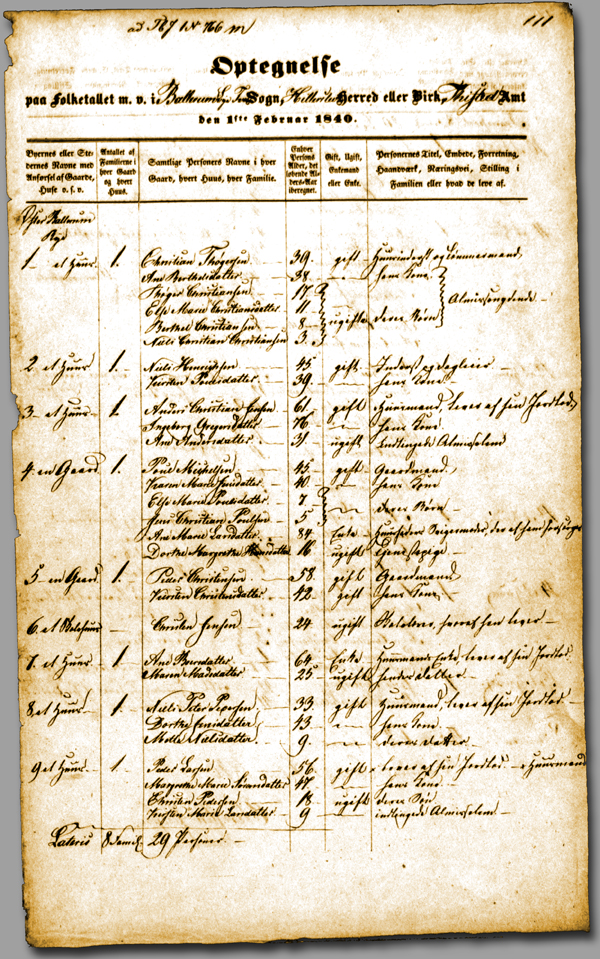 111
Optegnelse
paa Folketallet m. v. i Sogn, Herred eller Birk, Thisted Amt
den 1ste Februar 1840.
Byernes eller Stedernes Navne med Anførsel af Gaarde, Huse o. s. v.
Antallet af Familierne i hver Gaard og hvert Huus.
Samtlige Personers Navne i hver Gaard, hvert Huus, hver Familie.
Enhver Persons Alder, det løbende Alders-Aar iberegnet.
Gift, Ugift, Enkemand eller Enke.
Personernes Titel, Embede, Forretning, Haandværk, Næringsvei, Stilling i Familien eller hvad de leve af.
Øster Ballerum
Bye
1. et Huus 1. Christian Thøgersen 39. gift
Ane Berthelsdatter 38. hans Kone
Thøger Christiansen 17.
Else Marie Christiansdatter 11.
Berthel Christiansen 8 ugifte deres Børn
Niels Christian Christiansen 3.
Almissenydende
2 et Huus 1. Niels Henrichsen 45 gift
Kirsten Poulsdatter 39. hans Kone
3. et Huus 1. Anders Christian Jensen 61 gift Huusmand, lever af sin Jordlod
Ingeborg Gregersdatter 76 hans Kone
Ane Andersdatter 31 ugift Almisselem
4. en Gaard 1. Poul Michelsen 45 gift Gaardmand
Karen Marie Jensdatter 40 hans Kone
Else Marie Poulsdatter 7
Jens Christian Poulsen 5 deres Børn
Ane Marie Larsdatter 84. Enke
Dorthe Margrethe 16 ugift Tjenestepige
5 en Gaard 1. Peder Christensen 58. gift Gaardmand
Kirsten Christensdatter 42 gift hans Kone
6. et Christen Jensen 24 ugift
7. et Huus 1. Ane Larsdatter 64. Enke Huusmands Enke, lever af sin Jordlod
Maren Madsdatter 25 ugift hendes Datter
8. et Huus 1. Niels Peter 33 gift Huusmand, lever af sin Jordlod
Dorthe Jensdatter 43 hans Kone
Mette Nielsdatter 9. deres Datter
9 et Huus 1. Peder Larsen 56. gift lever af sin Jordlod Huusmand
Margrethe Marie 47 hans Kone
Christen Pedersen 18 ugift deres Søn
Kirsten Marie Larsdatter 9 Almisselem
Lateris 8 Famil. 29 Personer